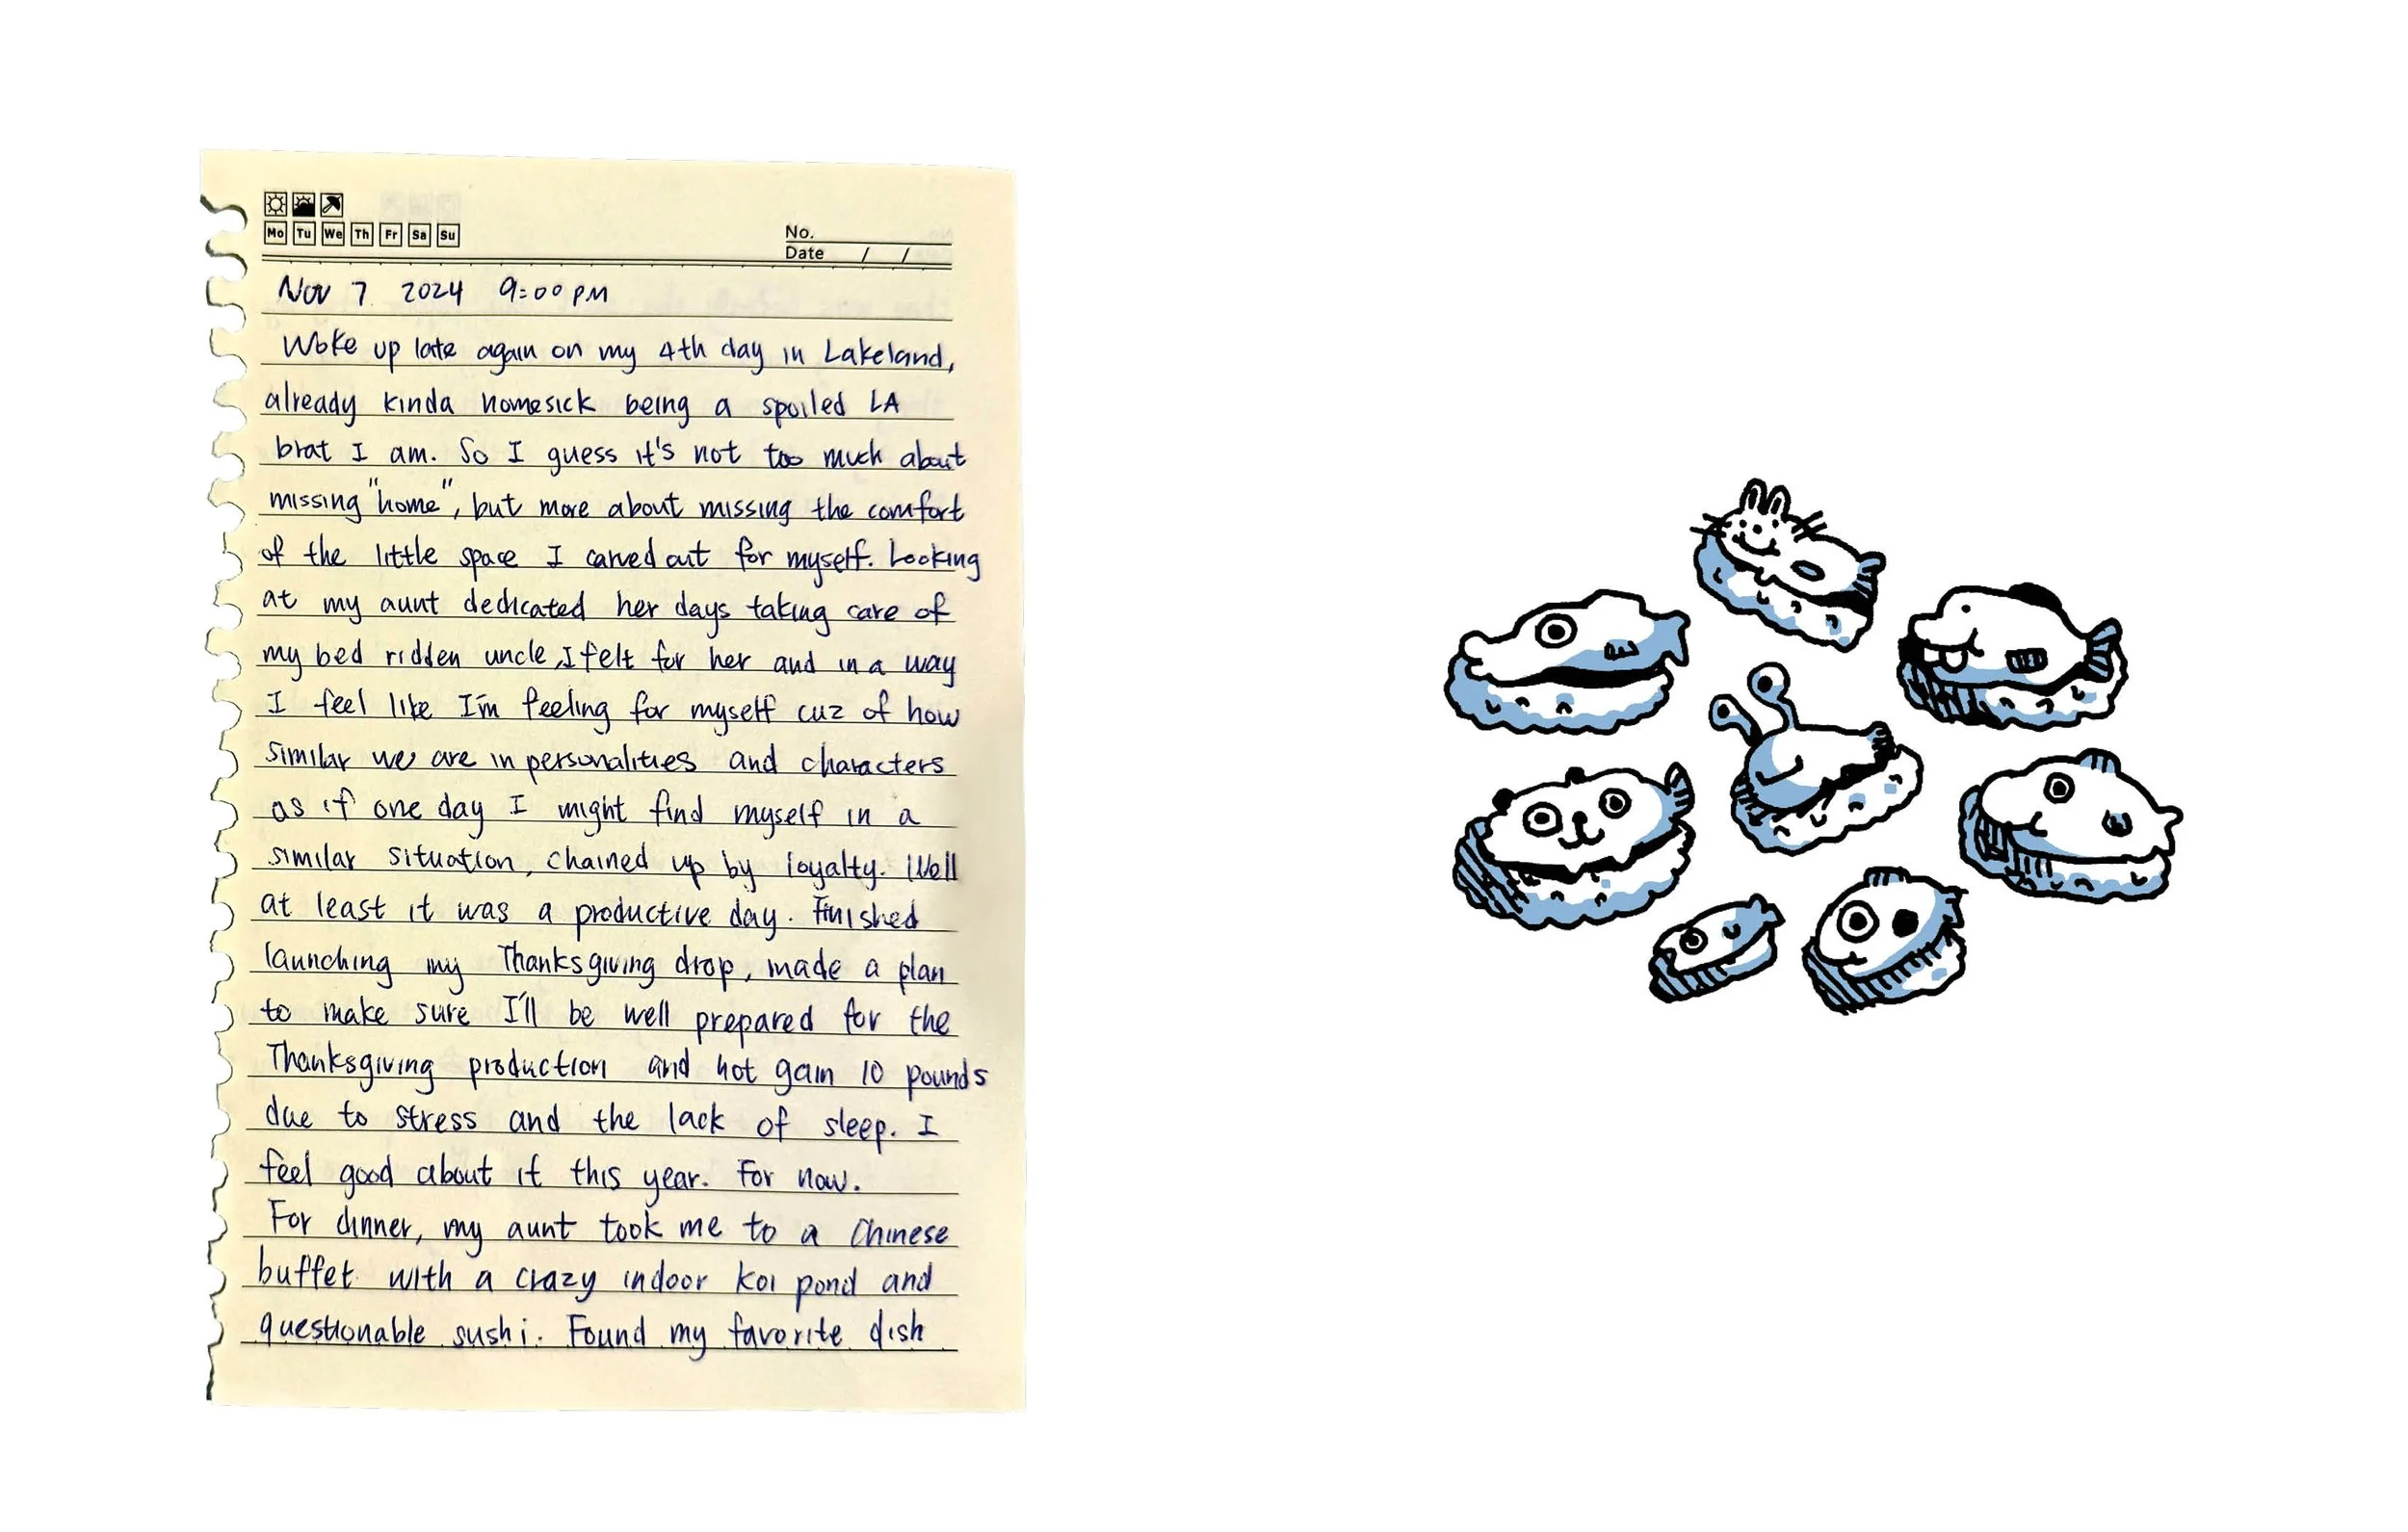 Mo Tu We Th Fr Sa Su
No.
Date / /
Nov 7 2024 9:00 PM
Woke up late again on my 4th day in Lakeland,
already kinda homesick being a spoiled LA
brat I am. So I guess it's not too much about
missing "home", but more about missing the comfort
of the little space I carved out for myself. Looking
at my aunt dedicated her days taking care of
my bed ridden uncle, I felt for her and in a way
I feel like I'm feeling for myself cuz of how
similar we are in personalities and characters
as if one day I might find myself in a
similar situation, chained up by loyalty. Well
at least it was a productive day. Finished
launching my Thanksgiving drop, made a plan
to make sure I'll be well prepared for the
Thanksgiving production and not gain 10 pounds
due to stress and the lack of sleep. I
feel good about it this year. For now.
For dinner, my aunt took me to a Chinese
buffet with a crazy indoor koi pond and
questionable sushi. Found my favorite dish